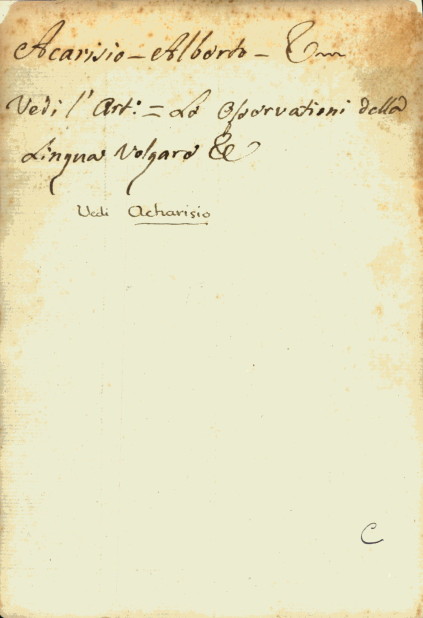 Acarisio - Alberto -
Vedi l' Art.º = Le Osservationi della
Lingua Volgare &c
Vedi Acharisio
C